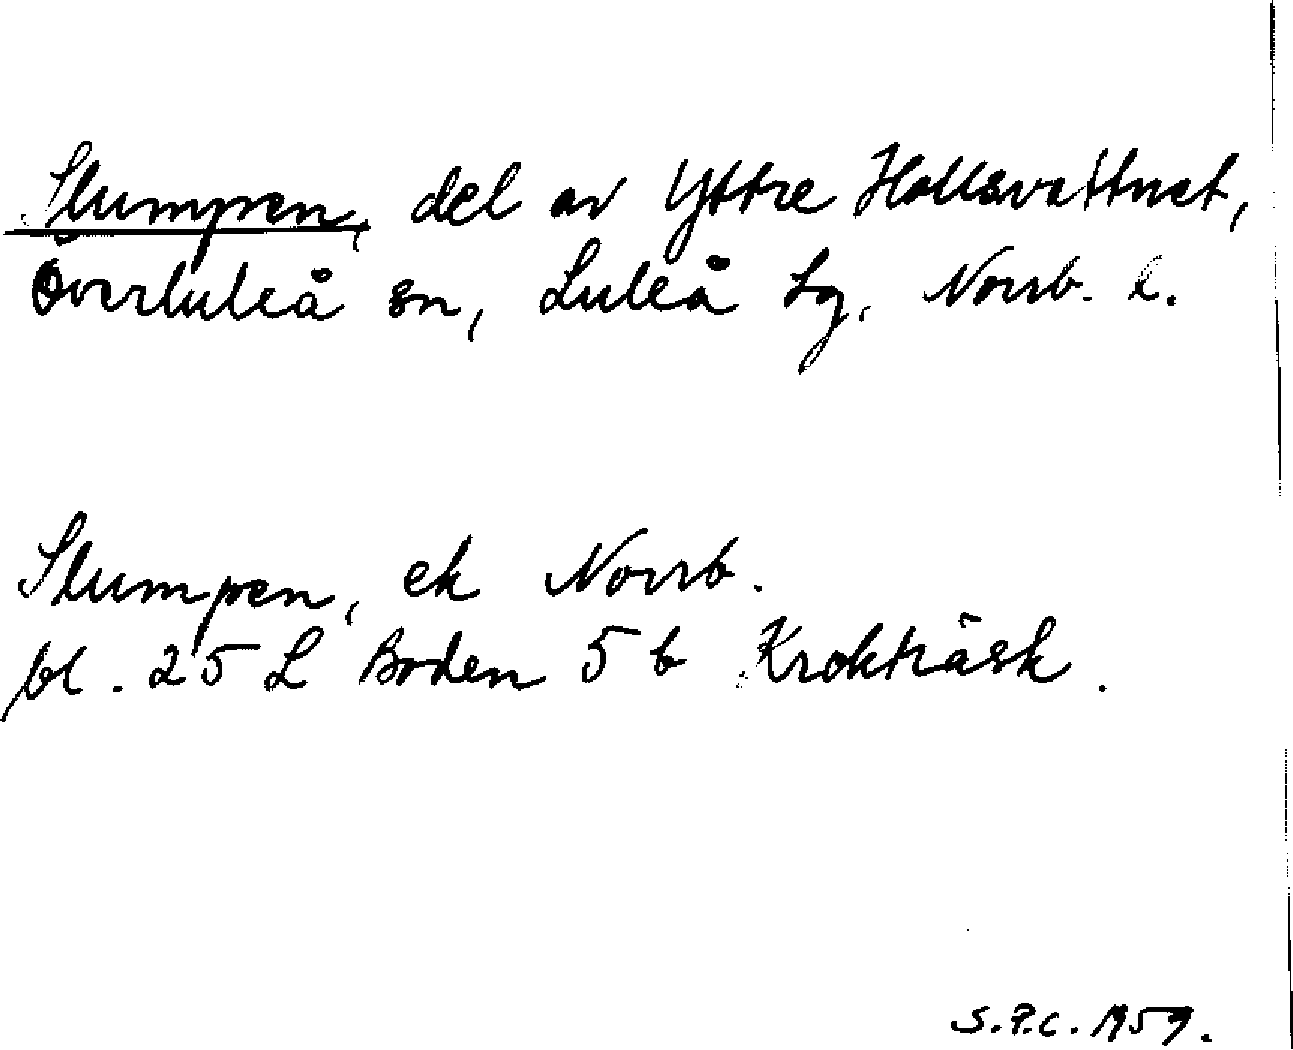 Slumpen, del av Yttre Hallsvattnet,
Överluleå sn, Luleå tg, Norrb. l.
Slumpen, ek Norrb.
bl. 25 L Boden 5 b Krokträsk.
S.P.C. 1959.